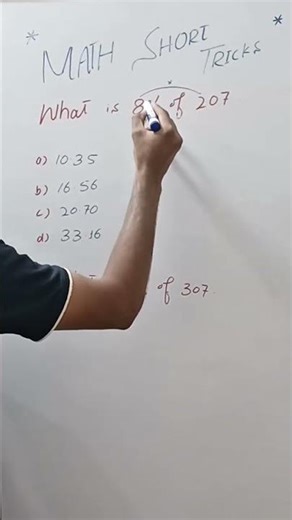 * MATH SHORT TRICKS *
What is 8% of 207
a) 10.35
b) 16.56
c) 20.70
d) 33.16
of 307.